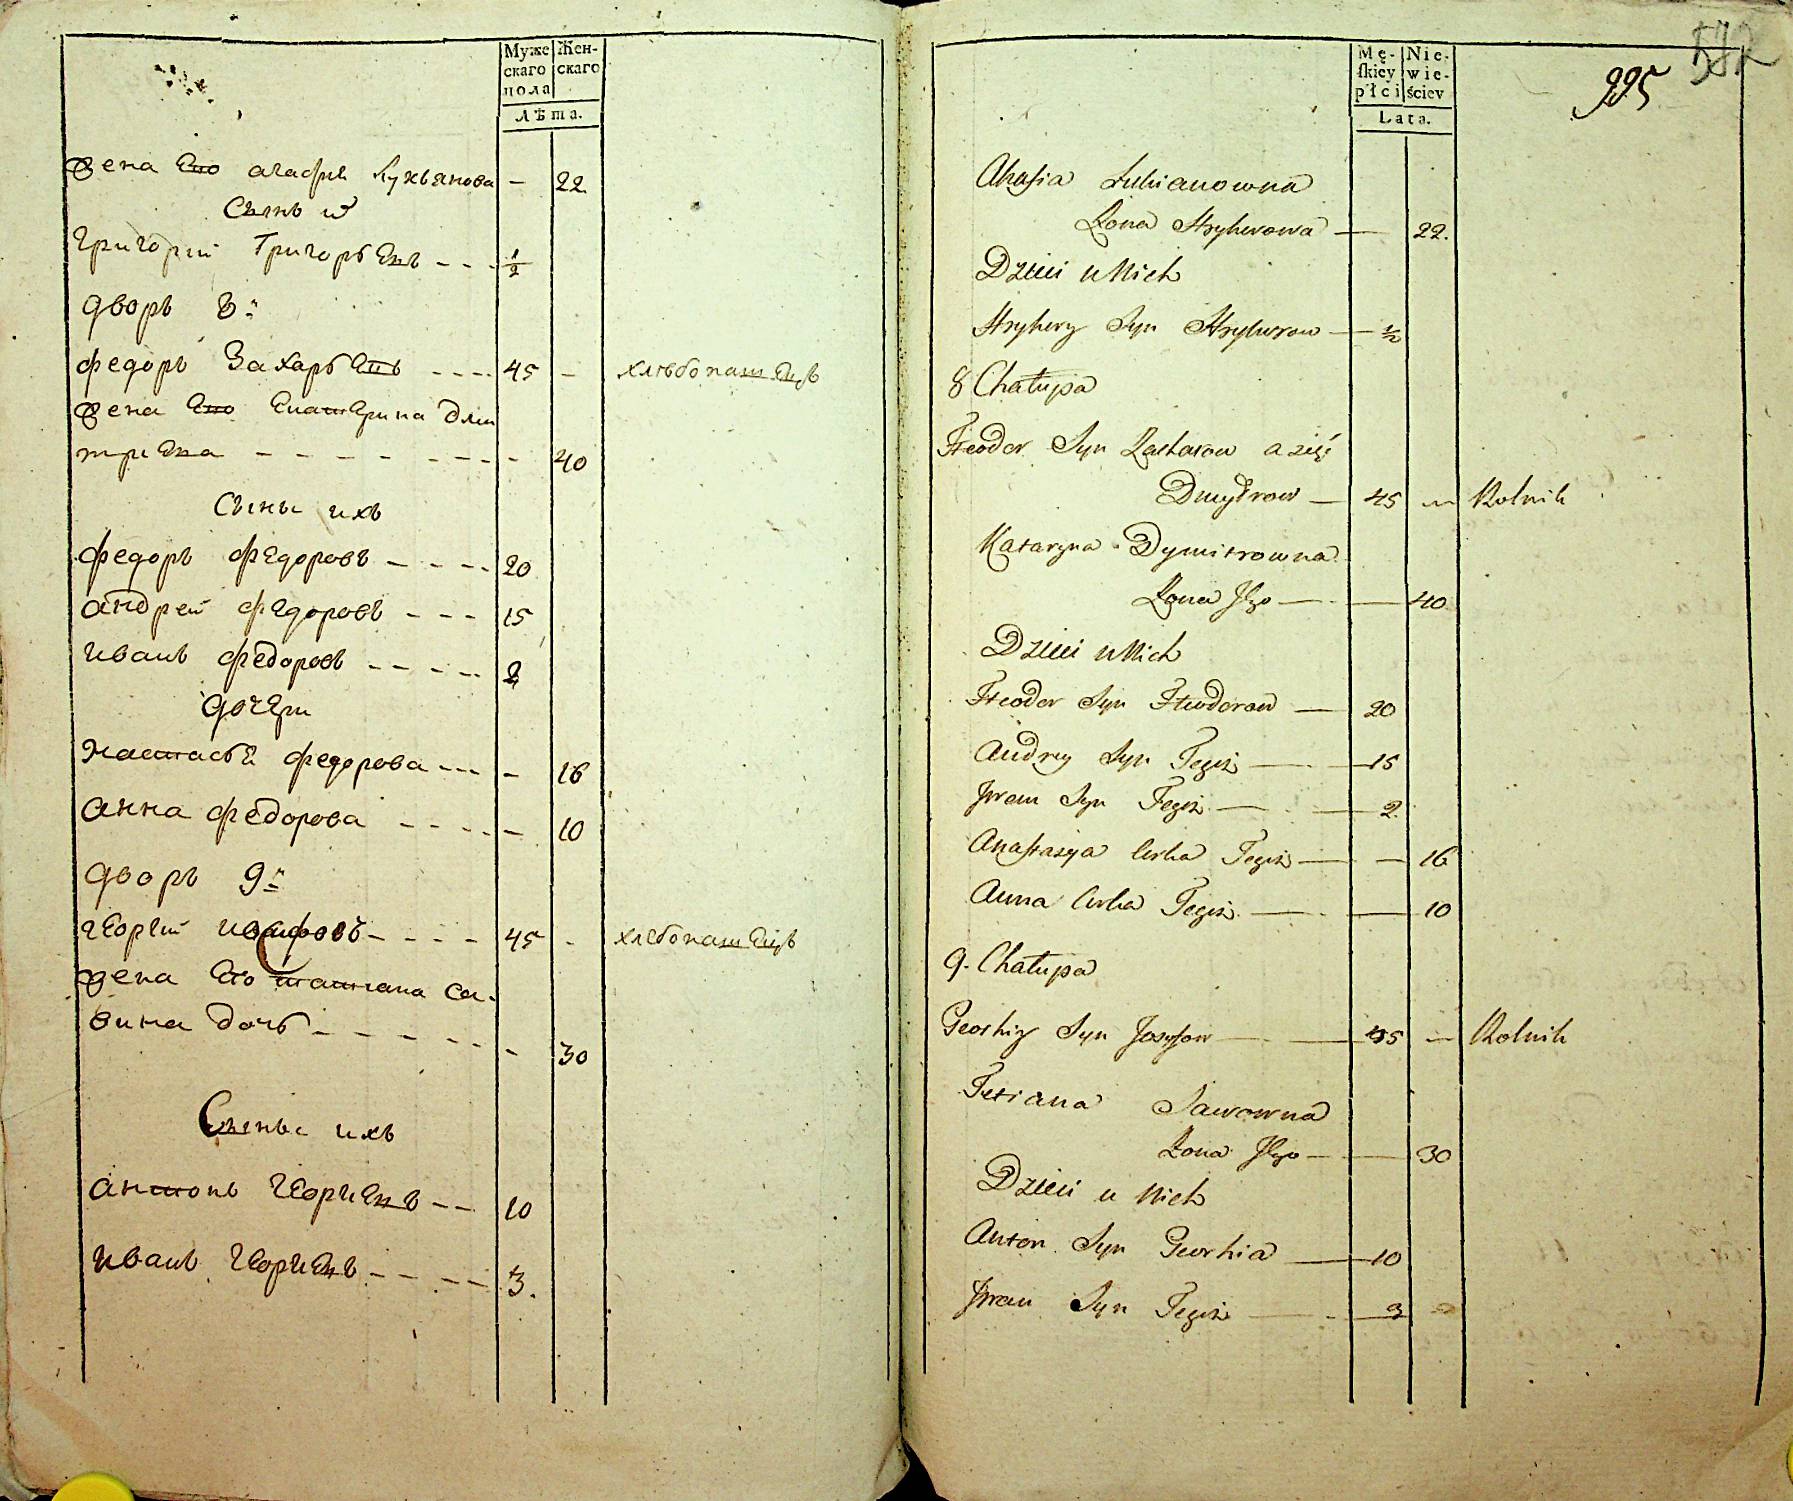 Муже
скаго
пола
Жен-
скаго
Лѣта.
жена Его агафия Лукьянова — 22
Сынъ их
Григорий Григорьевъ - - - 1/2
дворъ 8й
федоръ Захарьевъ - - - - 45 - хлѣбопашецъ
жена Его Екатерина дми
триева - - - - - - - - 40
Сыны ихъ
федоръ федоровъ - - - - 20
андрей федоровъ - - - 15
иванъ федоровъ - - - - - 2
дочери
настасья федорова - - - - 16
анна федорова - - - - - 10
дворъ 9й
георгий иосифовъ - - - - 45 - хлебопашецъ
жена Его татиана са-
вина дочь - - - - - - 30
Сыны ихъ
антонъ георгиевъ - - 10
иванъ георгиевъ - - - - - 3.
572
995
Mę-
skiey
płci
Nie-
wie-
ściey
Lata.
Ahafia Łukianowna
Żona Hryhorowa — 22.
Dzieci u Nich
Hryhory Syn Hryhorow — 1/2
8 Chałupa
Fteodor Syn Zacharow a zięć
Dmytrow — 45 — Rolnik
Katarzyna Dymitrowna
Żona Jego — — 40
Dzieci u Nich
Fteodor Syn Fteodorow — 20
Andrey Syn Tegiż — — 15
Jwan Syn Tegiż — — 2.
Anastazya Corka Tegiż — — 16
Anna Corka Tegiż — — 10
9. Chałupa
Georhiy Syn Jozyfow — — 45 — Rolnik
Tetiana Sawowna
Żona Jego — — 30
Dzieci u Nich
Anton Syn Georhia — 10
Jwan Syn Tegiż — - — 3